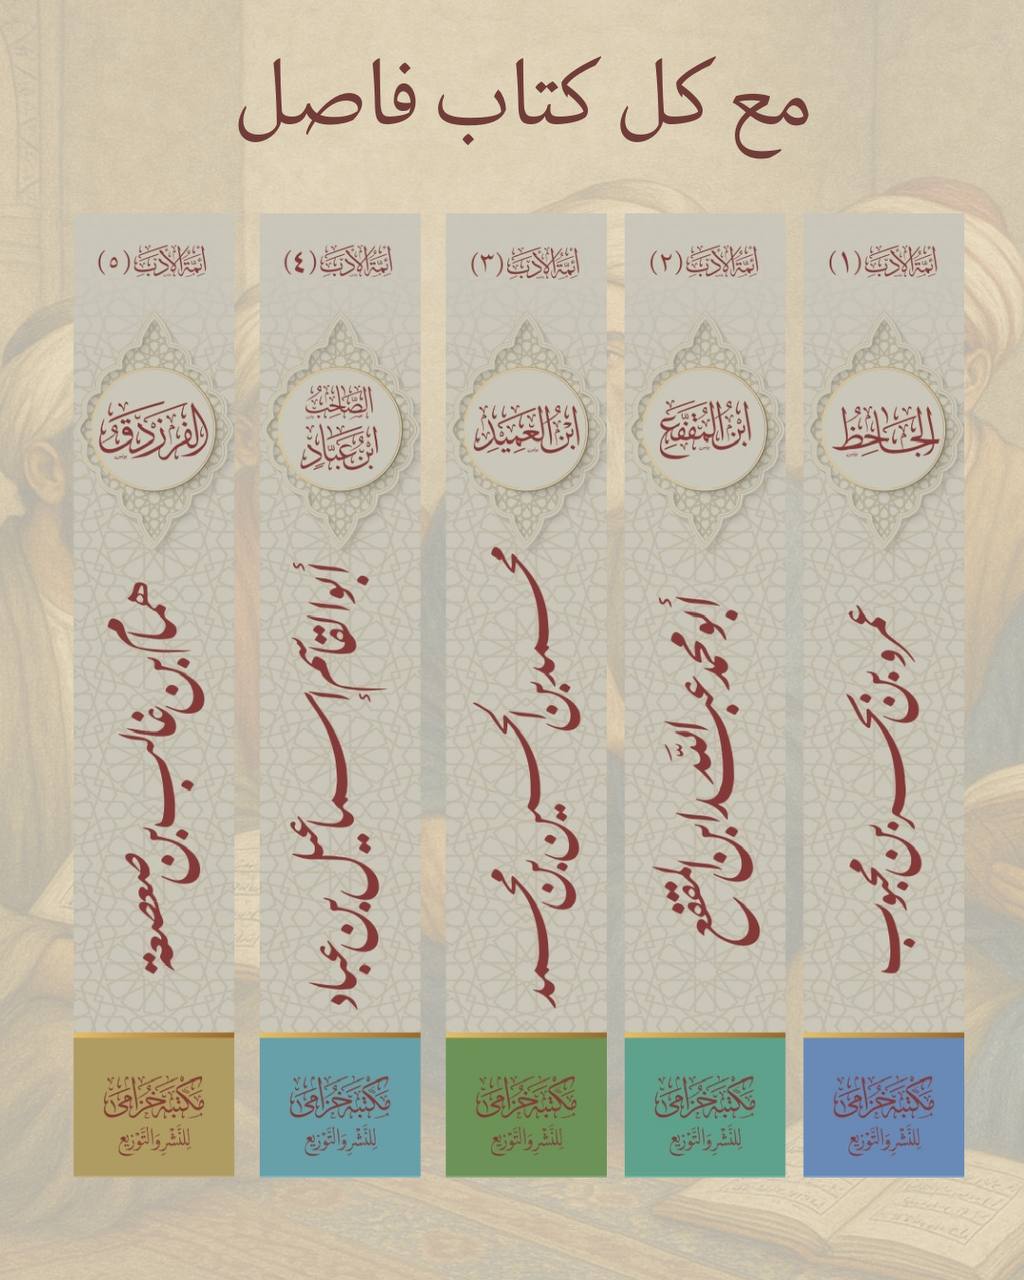 مع كل كتاب فاصل
أئمة الأدب (١)
الجاحظ
عمرو بن بحر بن محبوب
مكتبة خزامى
للنشر والتوزيع
أئمة الأدب (٢)
ابن المقفع
أبو محمد عبد الله ابن المقفع
مكتبة خزامى
للنشر والتوزيع
أئمة الأدب (٣)
ابن العميد
محمد بن الحسين بن محمد
مكتبة خزامى
للنشر والتوزيع
أئمة الأدب (٤)
الصاحب
ابن عباد
أبو القاسم إسماعيل بن عباد
مكتبة خزامى
للنشر والتوزيع
أئمة الأدب (٥)
الفرزدق
همام بن غالب بن صعصعة
مكتبة خزامى
للنشر والتوزيع